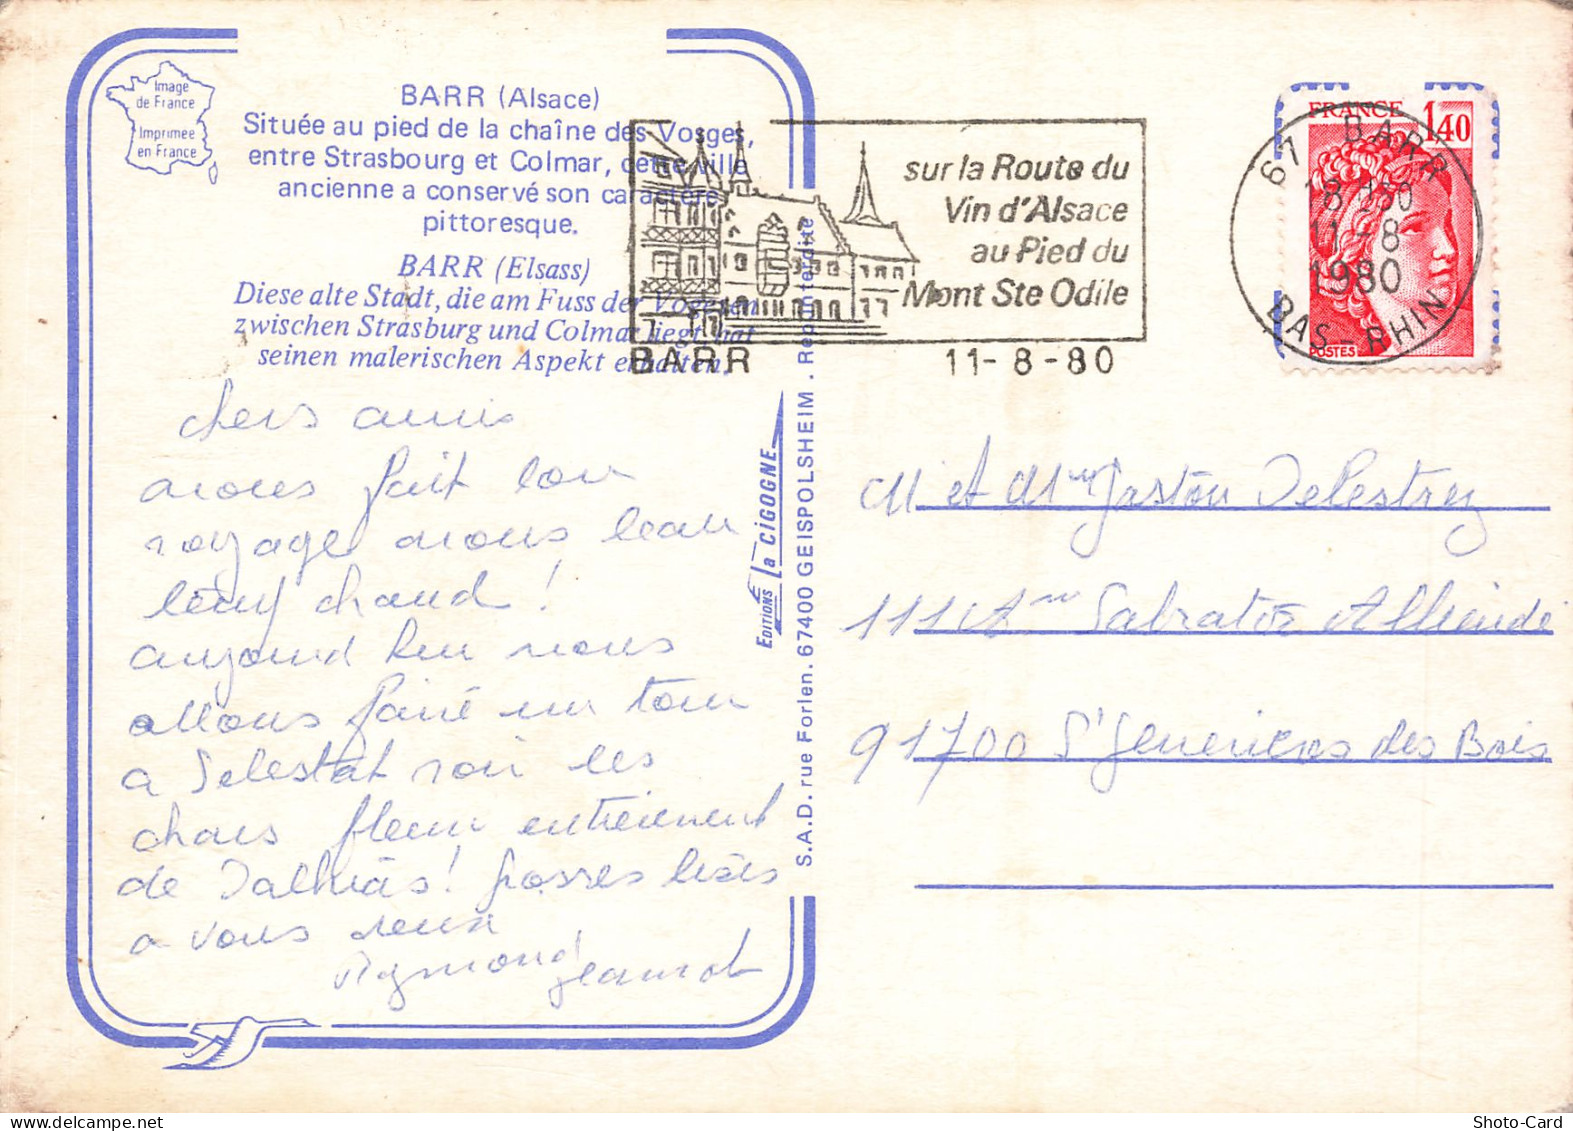 Image
de France
Imprimée
en France
BARR (Alsace)
Située au pied de la chaîne des Vosges,
entre Strasbourg et Colmar, cette ville
ancienne a conservé son caractère
pittoresque.
BARR (Elsass)
Diese alte Stadt, die am Fuss der Vogesen
zwischen Strasburg und Colmar liegt, hat
seinen malerischen Aspekt erhalten.
chers amis
nous fait bon
voyage nous beau
temp chaud !
aujourd hui nous
allons faire un tour
a Selestat voir les
chars fleuri
de Dalhias ! grosses bises
a vous deux
Raymond Jeannot
EDITIONS La CIGOGNE
S.A.D. rue Forlen. 67400 GEISPOLSHEIM . Reprod. interdite
sur la Route du
Vin d'Alsace
au Pied du
Mont Ste Odile
BARR 11-8-80
FRANCE 1,40
POSTES
67 BARR
18 H 30
11-8
1980
BAS-RHIN
M et Mme Gaston Delestrez
111 Av Salvator Allende
91700 St Genevieves des Bois
Shoto-Card